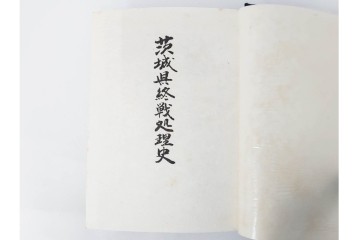 茨城県終戦処理史